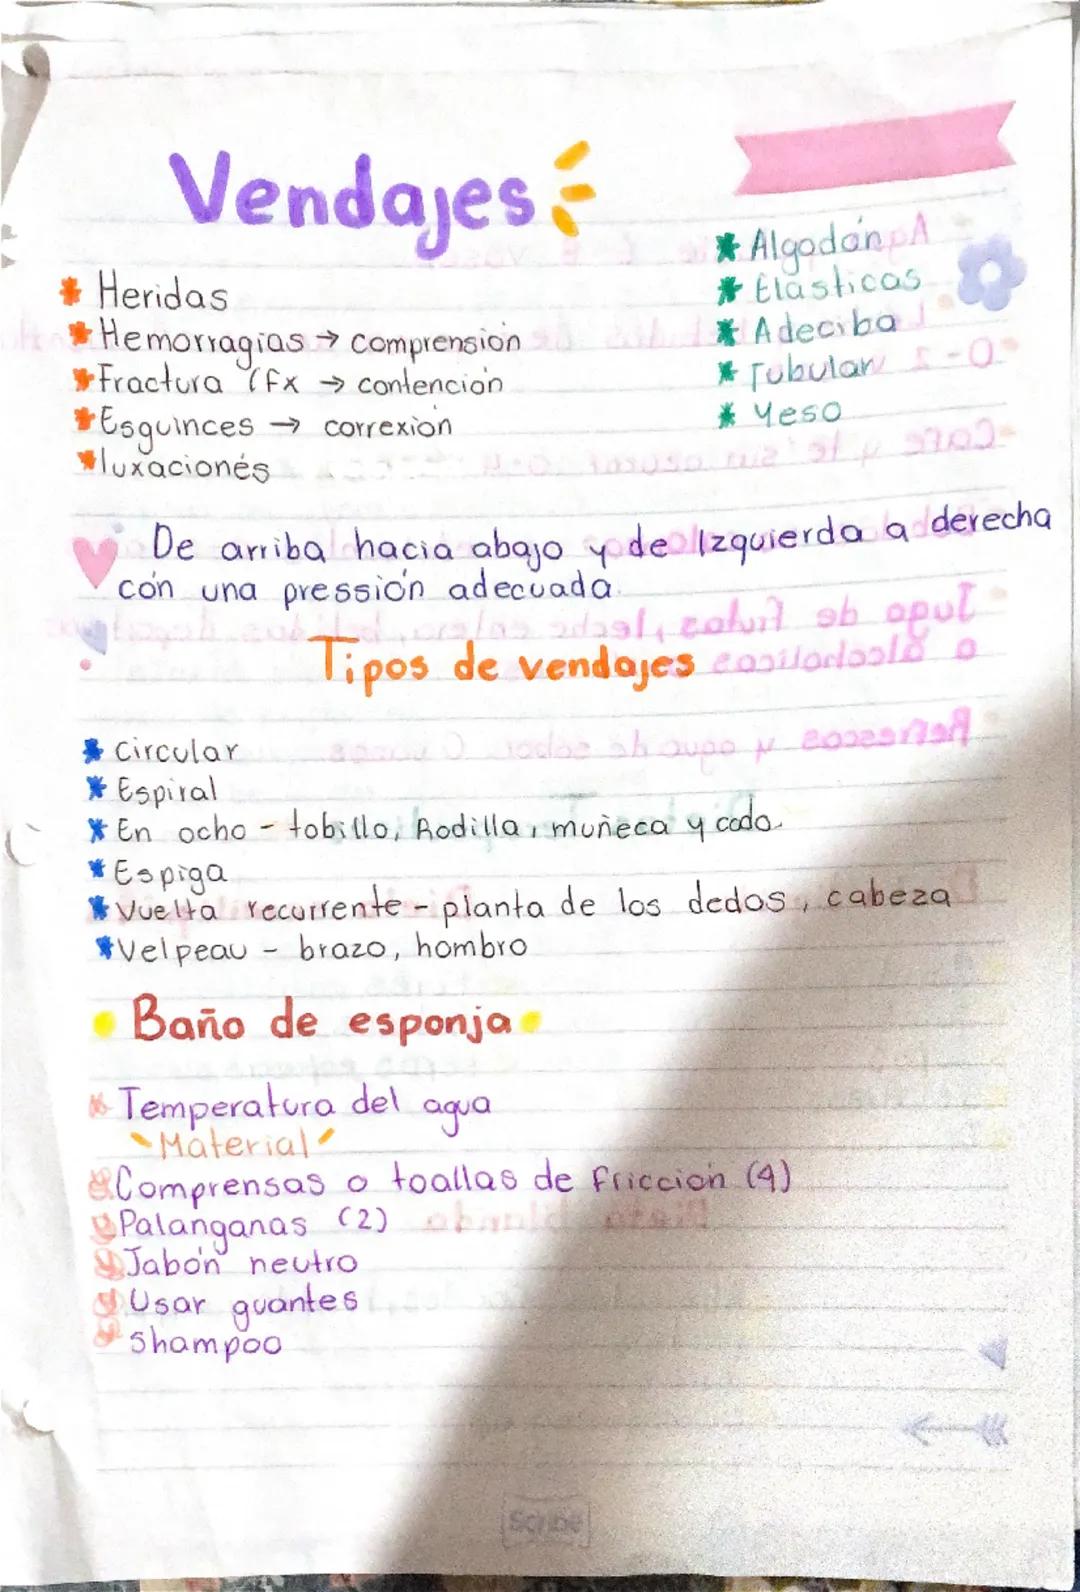 Vendajes
* Heridas
* Hemorragias → comprensión
* Fractura (fx → contención
* Esguinces → correxión
* luxacionés
* Algodón
* Elásticas
* Adeciba
* Tubular
* Yeso
De arriba hacia abajo y de Izquierda a derecha
con una pressión adecuada.
Tipos de vendajes
* Circular
* Espiral
* En ocho - tobillo, Rodilla, muñeca y codo.
* Espiga
* Vuelta recurrente - planta de los dedos, cabeza
* Velpeau - brazo, hombro
Baño de esponja
Temperatura del agua
Material
Comprensas o toallas de fricción (4)
Palanganas (2)
Jabón neutro
Usar guantes
Shampoo
Scribe